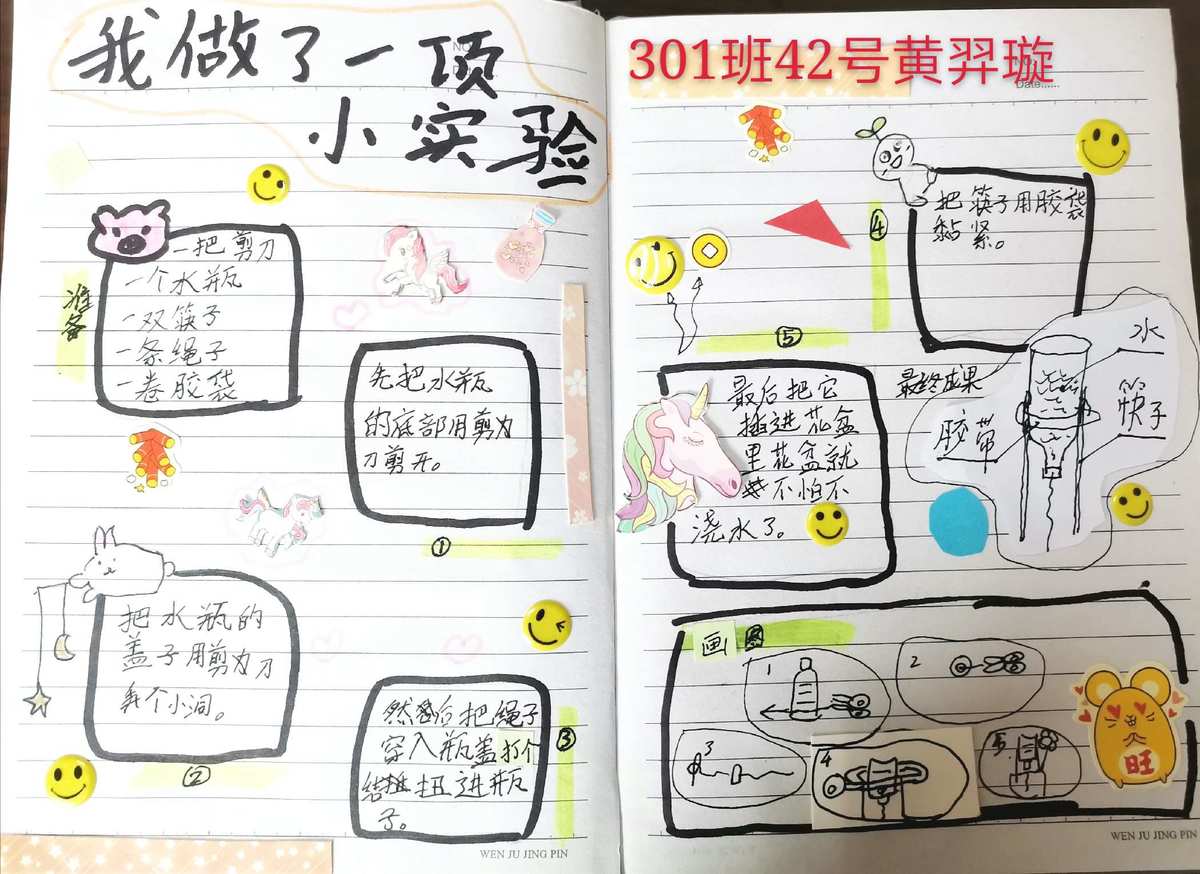 我做了一项
小实验
准备
一把剪刀
一个水瓶
一双筷子
一条绳子
一卷胶袋
先把水瓶
的底部用剪刀
刀剪开。
①
把水瓶的
盖子用剪刀刀
弄个小洞。
②
然后把绳子
穿入瓶盖打个
结扭进瓶
子。
③
WEN JU JING PIN
301班42号黄羿璇
Date......
④
把筷子用胶袋
黏紧。
⑤
最后把它
插进花盆
里花盆就
不怕不
浇水了。
最终成果
水
筷子
胶带
画
1
2
3
4
5
旺
WEN JU JING PIN